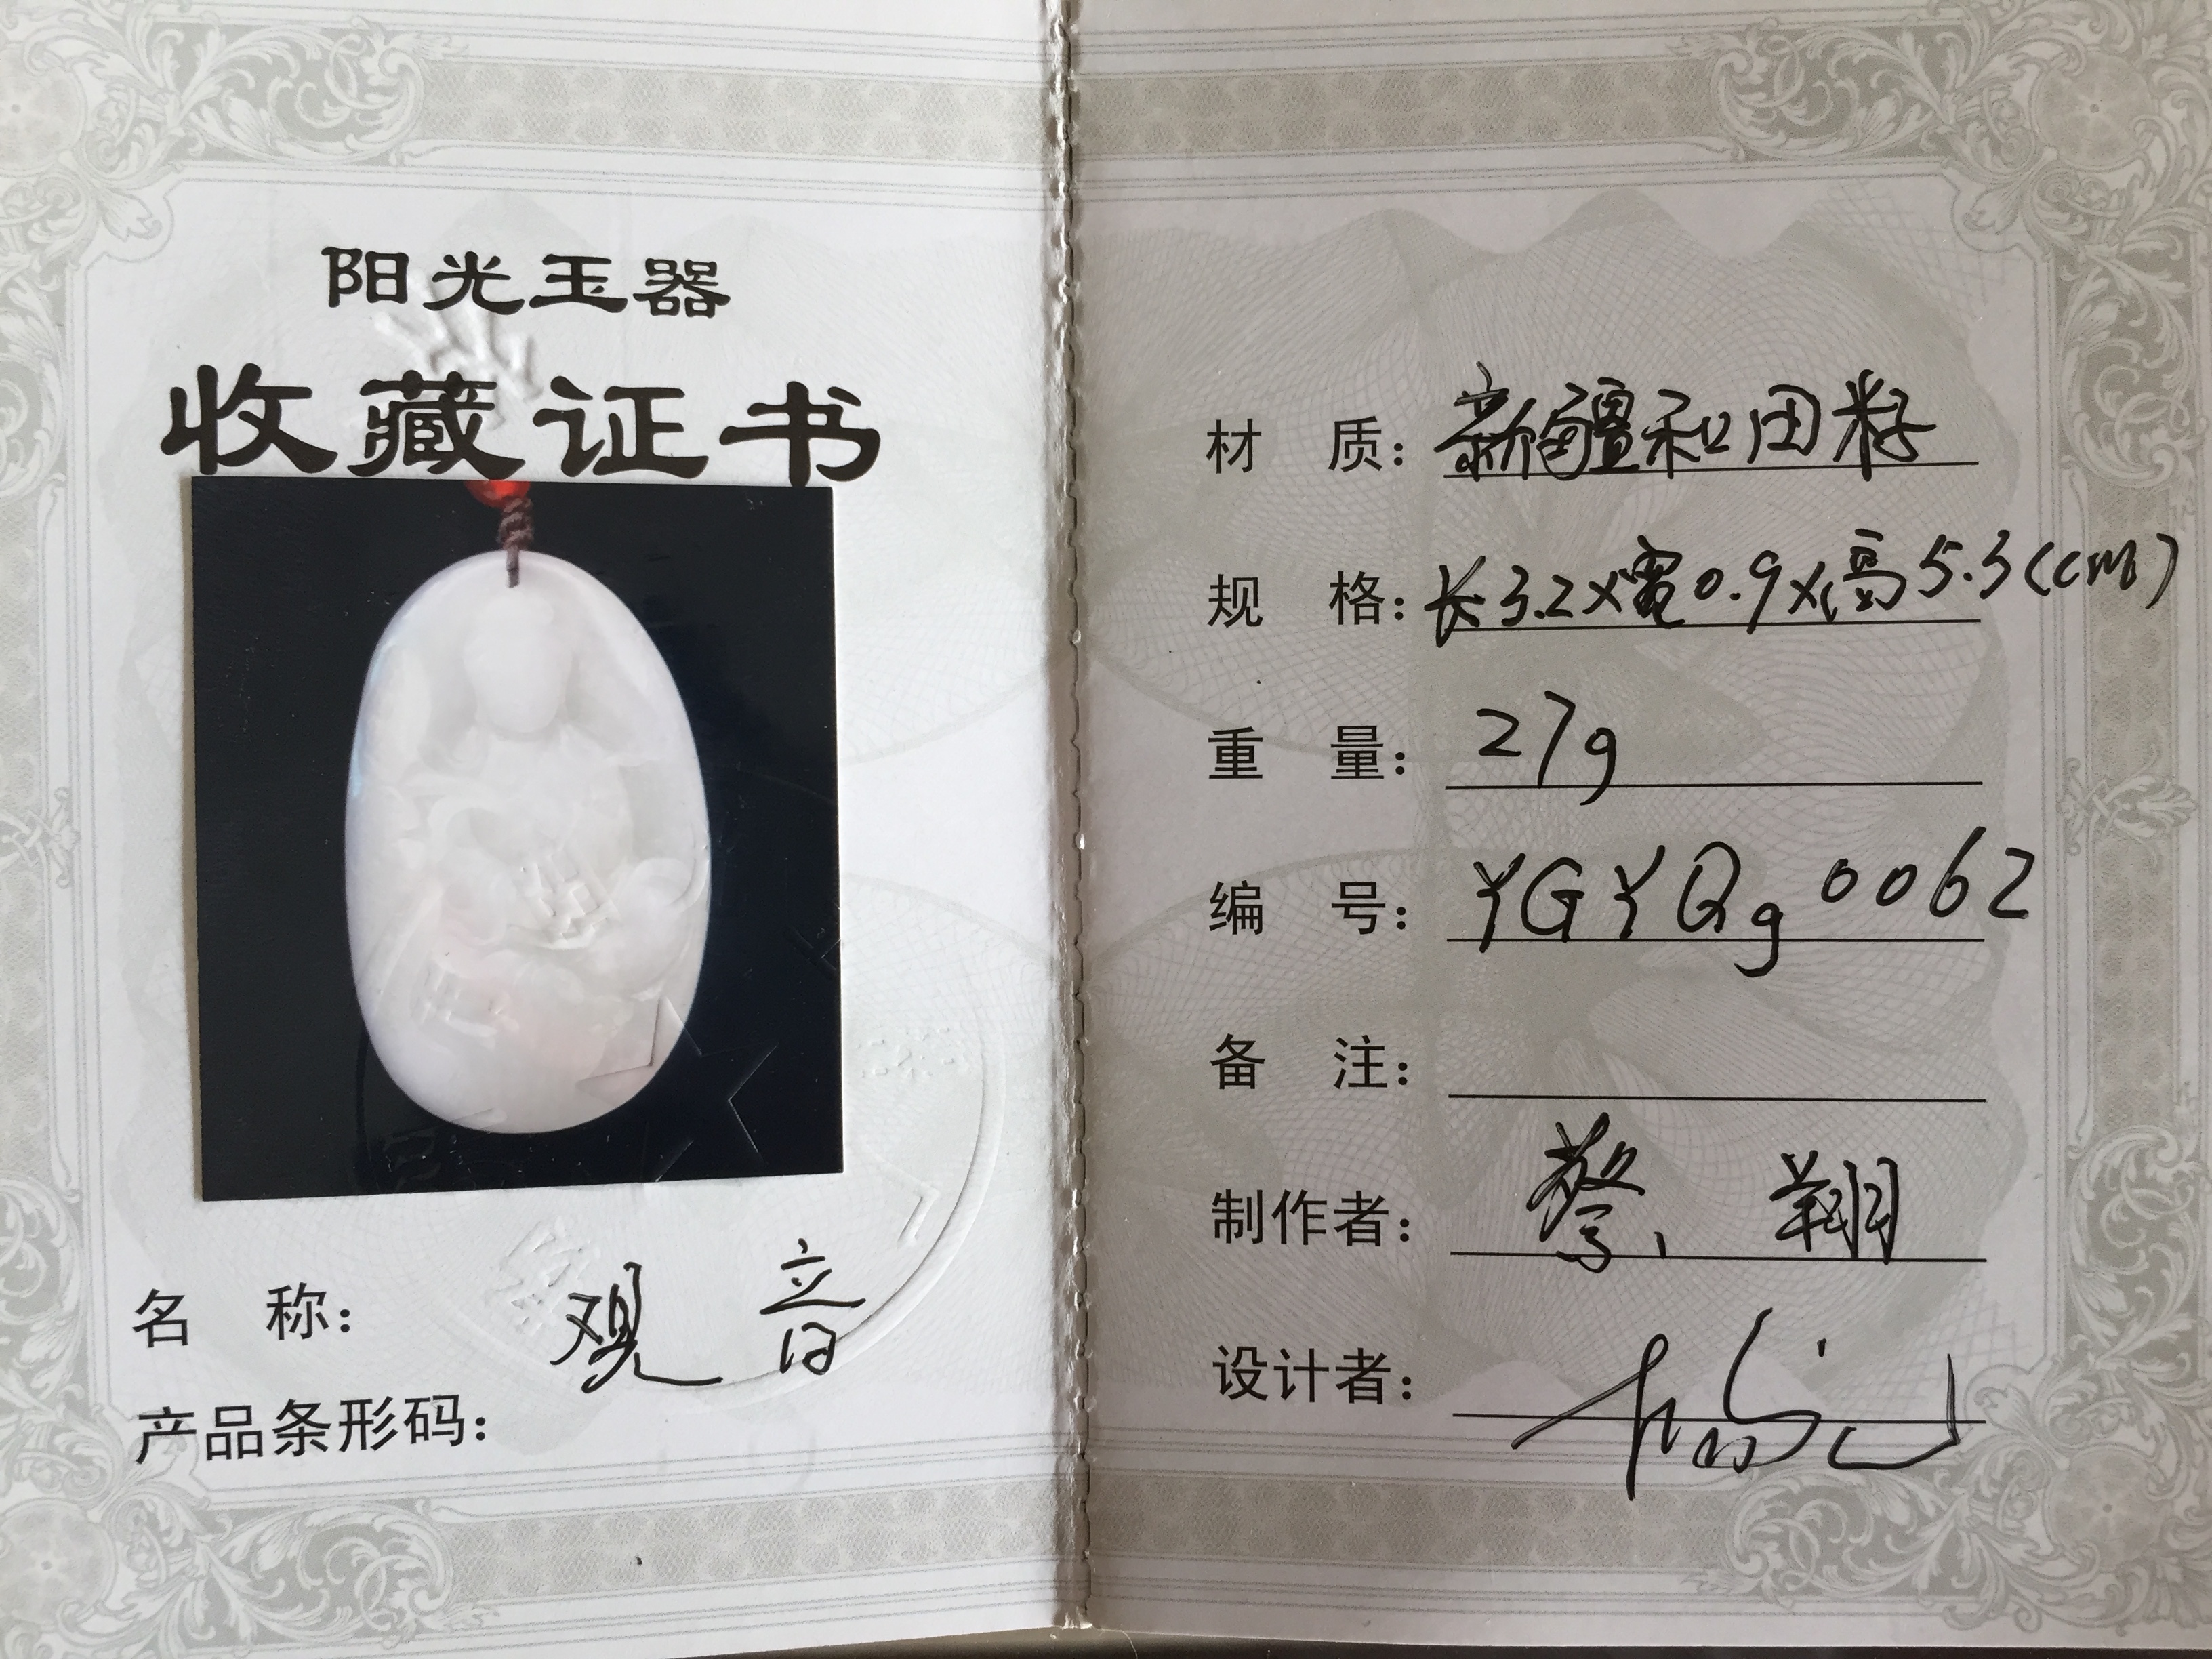 阳光玉器
收藏证书
名 称：观音
产品条形码：
材 质：新疆和田籽
规 格：长3.2×宽0.9×高5.3(cm)
重 量：27g
编 号：YGYQg0062
备 注：
制作者：蔡翔
设计者：